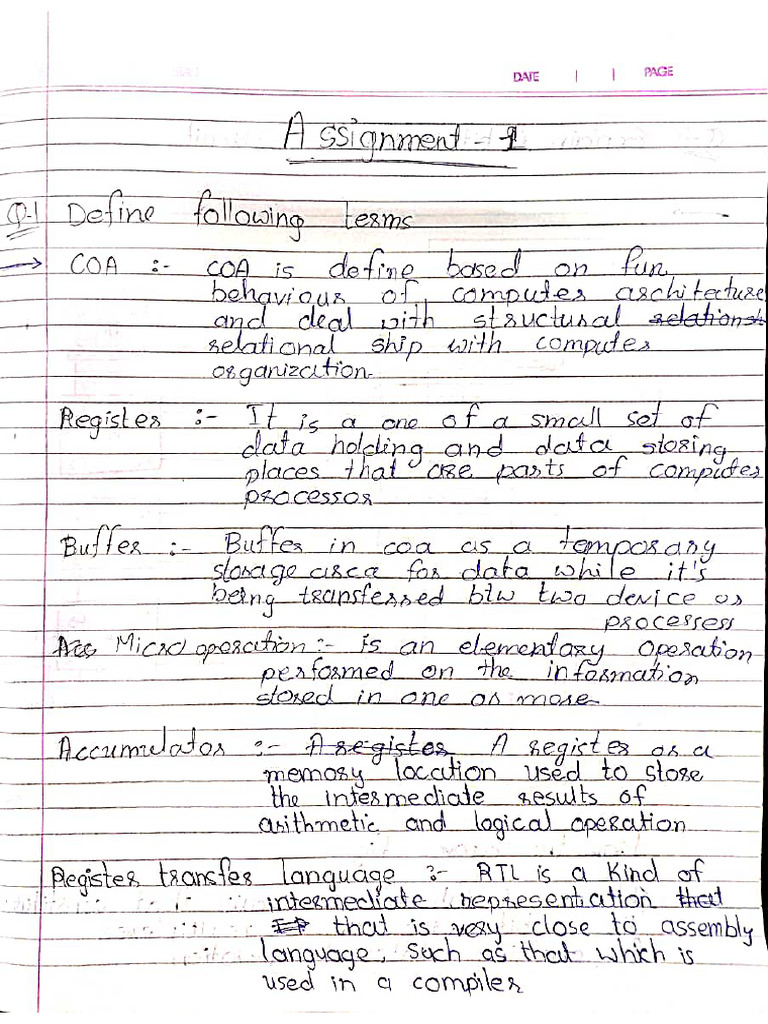 DATE | | PAGE
Assignment - 1
Q-1 Define following terms
→ COA :- COA is define based on fun
behaviour of computer architecture
and deal with structural relationsh
relational ship with computer
organization.
Register :- It is a one of a small set of
data holding and data storing
places that are parts of computer
processor
Buffer :- Buffer in coa as a temporary
storage area for data while it's
being transfessed btw two device or
processess
Acc Micro operation :- is an elementary operation
performed on the information
stored in one or more
Accumulator :- A register A register or a
memory location used to store
the intermediate results of
arithmetic and logical operation
Register transfer language :- RTL is a kind of
intermediate representation that
that is very close to assembly
language, such as that which is
used in a compiler